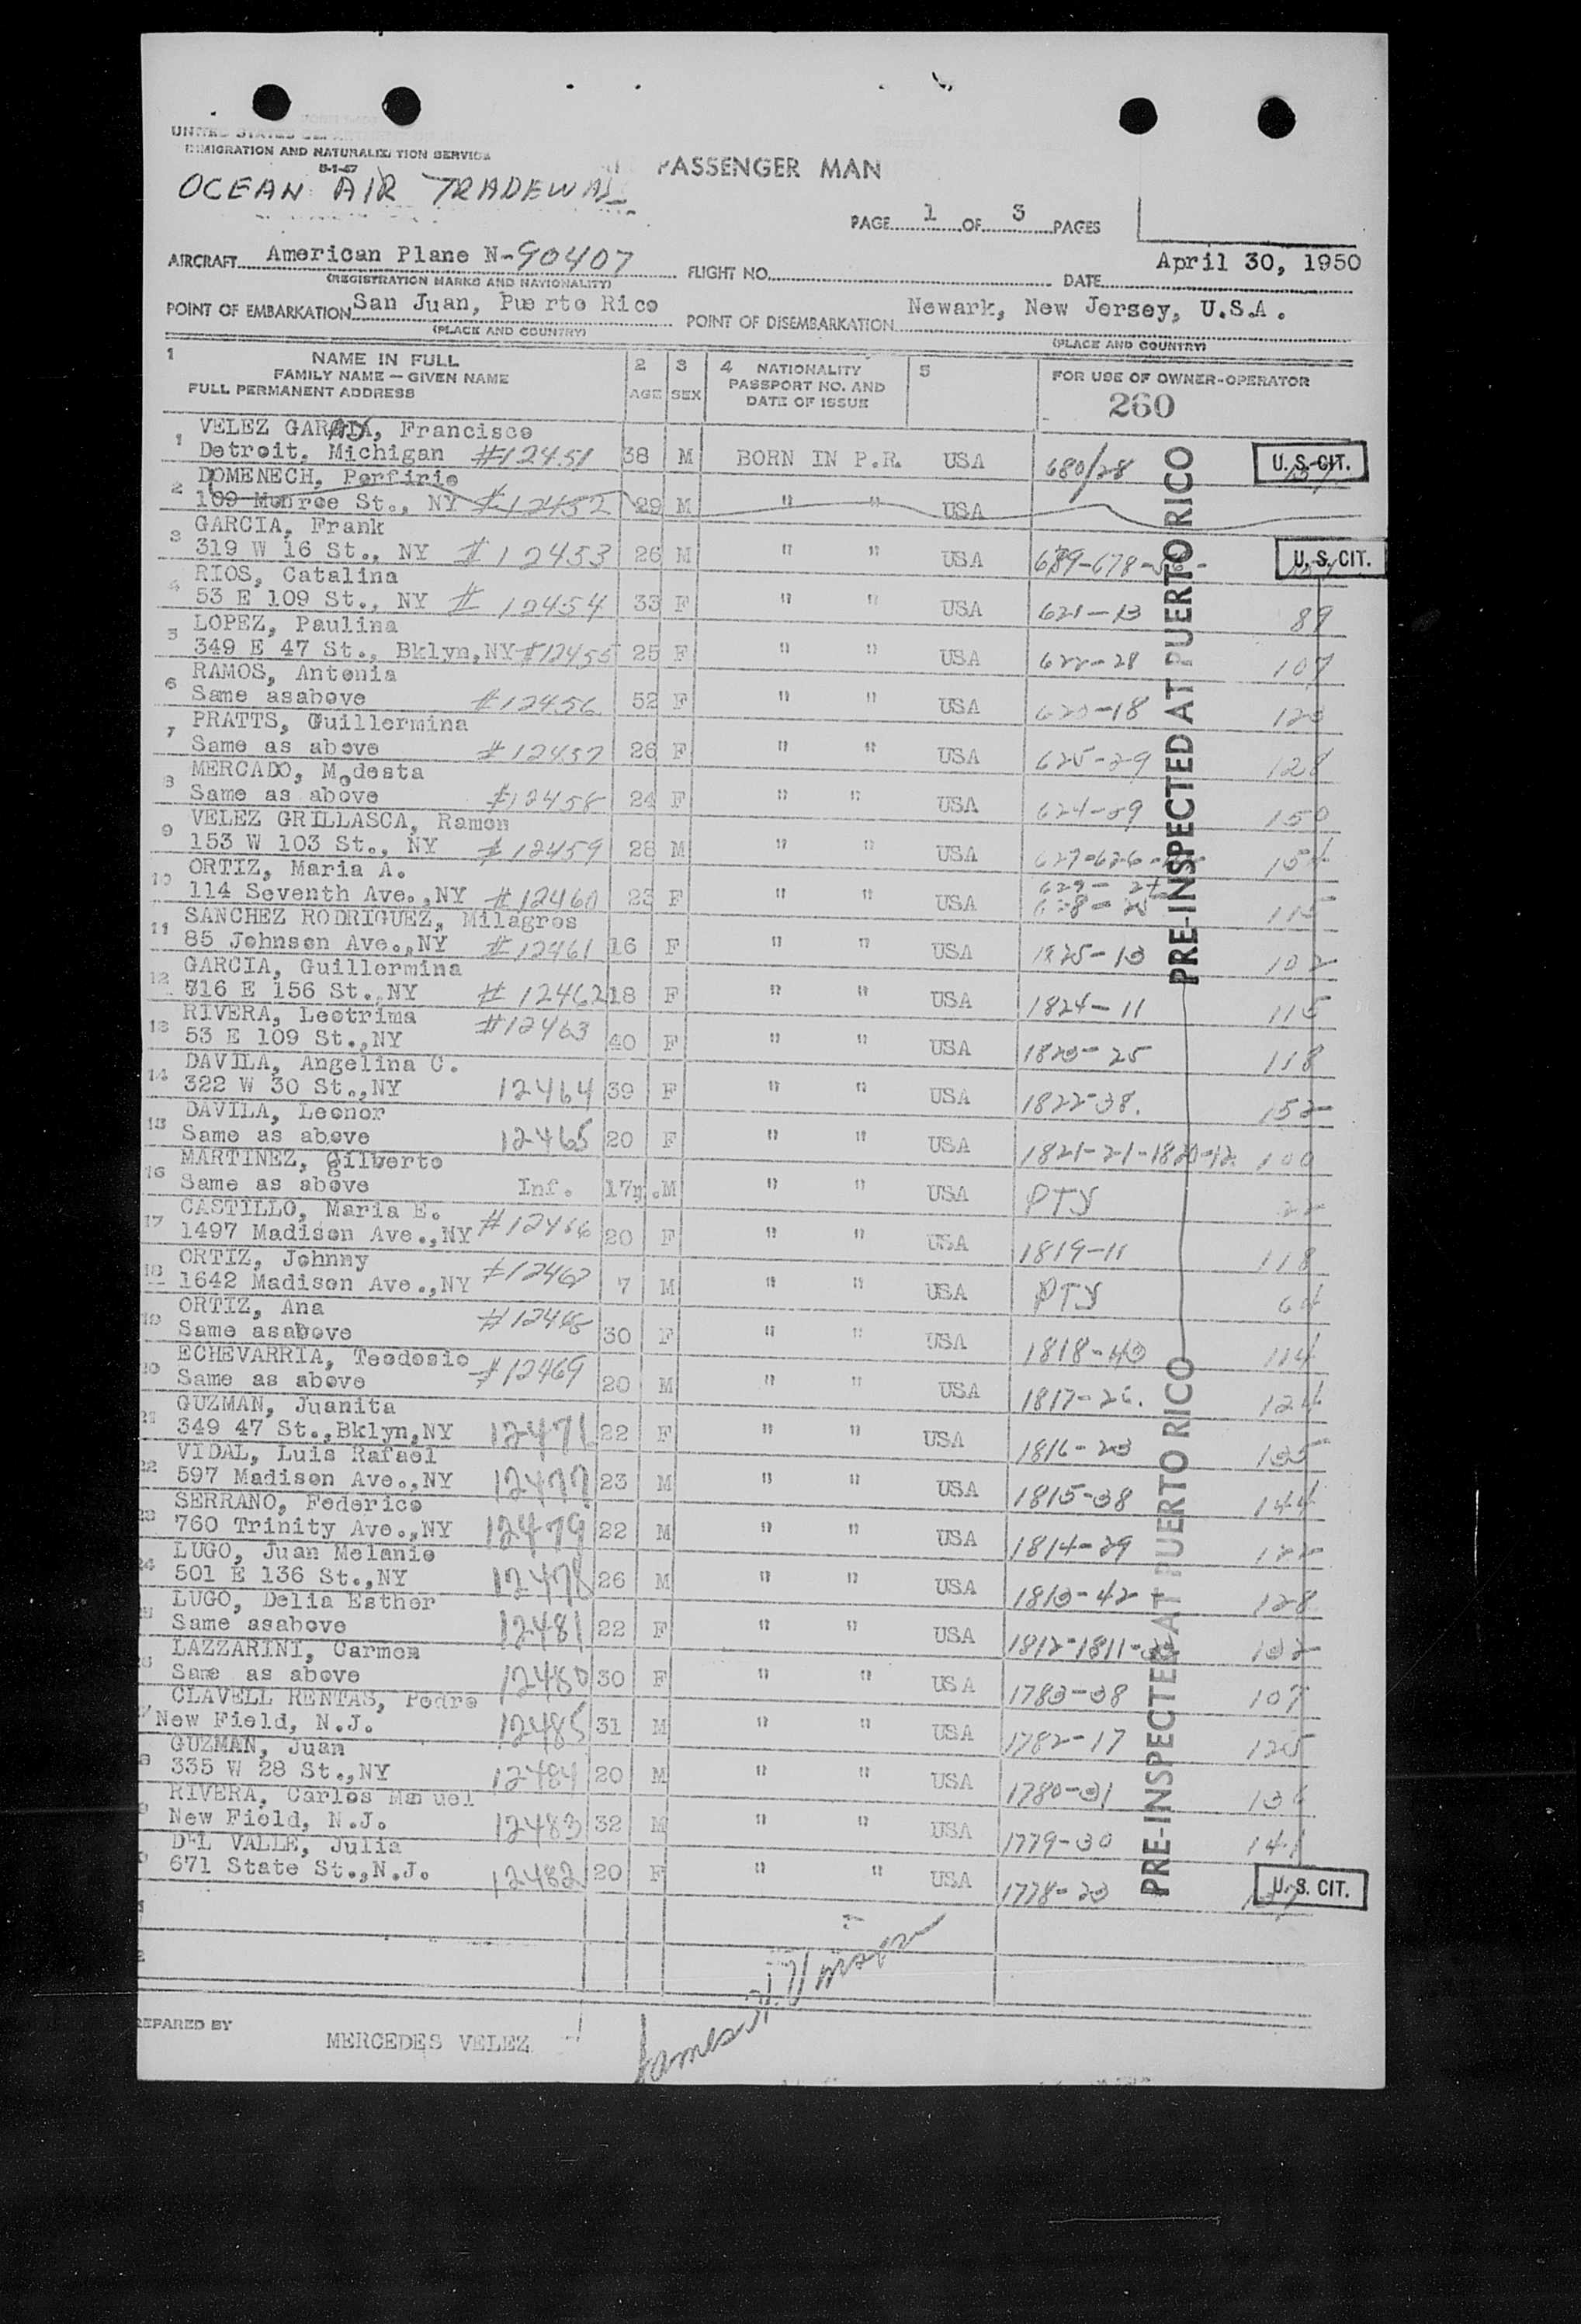 UNITED STATES
IMMIGRATION AND NATURALIZATION SERVICE
OCEAN AIR TRADEWAYS
PASSENGER MAN
PAGE 1 OF 3 PAGES
AIRCRAFT American Plane N-90407 FLIGHT NO. DATE April 30, 1950
(REGISTRATION MARKS AND NATIONALITY)
POINT OF EMBARKATION San Juan, Puerto Rico POINT OF DISEMBARKATION Newark, New Jersey, U.S.A.
(PLACE AND COUNTRY) (PLACE AND COUNTRY)
1 NAME IN FULL 2 3 4 NATIONALITY 5 FOR USE OF OWNER-OPERATOR
FAMILY NAME — GIVEN NAME PASSPORT NO. AND
FULL PERMANENT ADDRESS AGE SEX DATE OF ISSUE 260
VELEZ GARCIA, Francisco
1 Detroit, Michigan #12451 38 M BORN IN P.R. USA 680/28 U.S. CIT.
DOMENECH, Porfirio
2 109 Monroe St., NY #12452 29 M " " USA
GARCIA, Frank
3 319 W 16 St., NY #12453 26 M " " USA U.S. CIT.
RIOS, Catalina
4 53 E 109 St., NY # 12454 33 F " " USA 621-13 89
LOPEZ, Paulina
5 349 E 47 St., Bklyn,NY #12455 25 F " " USA 622-28 107
RAMOS, Antonia
6 Same asabove #12456 52 F " " USA
PRATTS, Guillermina
7 Same as above #12457 26 F " " USA 625-29 128
MERCADO, Modesta
8 Same as above #12458 24 F " " USA 624-59 150
VELEZ GRILLASCA, Ramon
9 153 W 103 St., NY #12459 28 M " " USA
ORTIZ, Maria A.
10 114 Seventh Ave.,NY #12460 23 F " " USA 115
SANCHEZ RODRIGUEZ, Milagros
11 85 Johnson Ave.,NY #12461 16 F " " USA 1825-13 102
GARCIA, Guillermina
12 716 E 156 St.,NY # 12462 18 F " " USA 1824-11 115
RIVERA, Leotrima #12463
13 53 E 109 St.,NY 40 F " " USA 1823-25 118
DAVILA, Angelina C.
14 322 W 30 St.,NY 12464 39 F " " USA 1822-38. 152
DAVILA, Leonor
15 Same as above 12465 20 F " " USA 1821-21-1820-12 100
MARTINEZ, Gilberto
16 Same as above Inf. 17m. M " " USA PTY 22
CASTILLO, Maria E.
17 1497 Madison Ave.,NY #12466 20 F " " USA 1819-11 118
ORTIZ, Johnny
18 1642 Madison Ave.,NY #12467 7 M " " USA PTY 64
ORTIZ, Ana
19 Same asabove #12468 30 F " " USA 1818-43 114
ECHEVARRIA, Teodosio
20 Same as above #12469 20 M " " USA 1817-26. 124
GUZMAN, Juanita
21 349 47 St.,Bklyn,NY 12471 22 F " " USA 1816-23 135
VIDAL, Luis Rafael
22 597 Madison Ave.,NY 12477 23 M " " USA 1815-38 144
SERRANO, Federico
23 760 Trinity Ave.,NY 12479 22 M " " USA 1814-29 122
LUGO, Juan Melanio
24 501 E 136 St.,NY 12478 26 M " " USA 1813-42 128
LUGO, Delia Esther
Same asabove 12481 22 F " " USA 132
LAZZARINI, Carmen
Same as above 12480 30 F " " USA 1783-38 107
CLAVELL RENTAS, Pedro
New Field, N.J. 12485 31 M " " USA 1782-17 125
GUZMAN, Juan
335 W 28 St.,NY 12484 20 M " " USA 1780-31 136
RIVERA, Carlos Manuel
New Field, N.J. 12483 32 M " " USA 1779-30 141
DEL VALLE, Julia
671 State St.,N.J. 12482 20 F " " USA 1778-23 U.S. CIT.
PRE-INSPECTED AT PUERTO RICO
PRE-INSPECTED AT PUERTO RICO
PREPARED BY
MERCEDES VELEZ
James